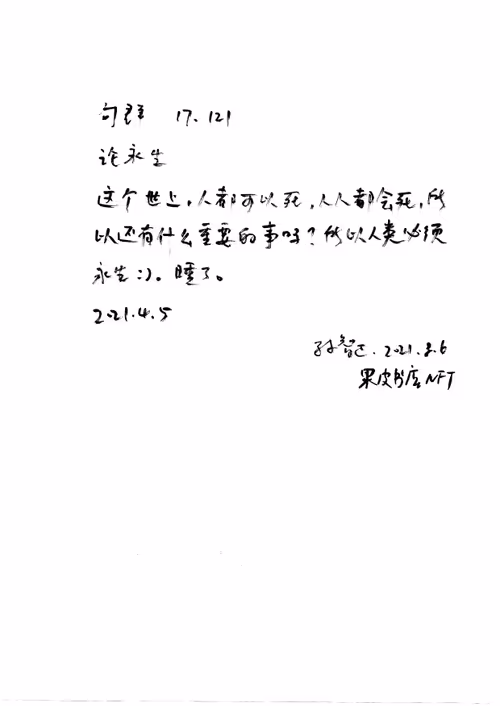 句群 17.121
论永生
这个世上,人都可以死,人人都会死,所
以还有什么重要的事吗?所以人类必须
永生:)。睡了。
2021.4.5
孙智正.2021.8.6
果皮书店NFT